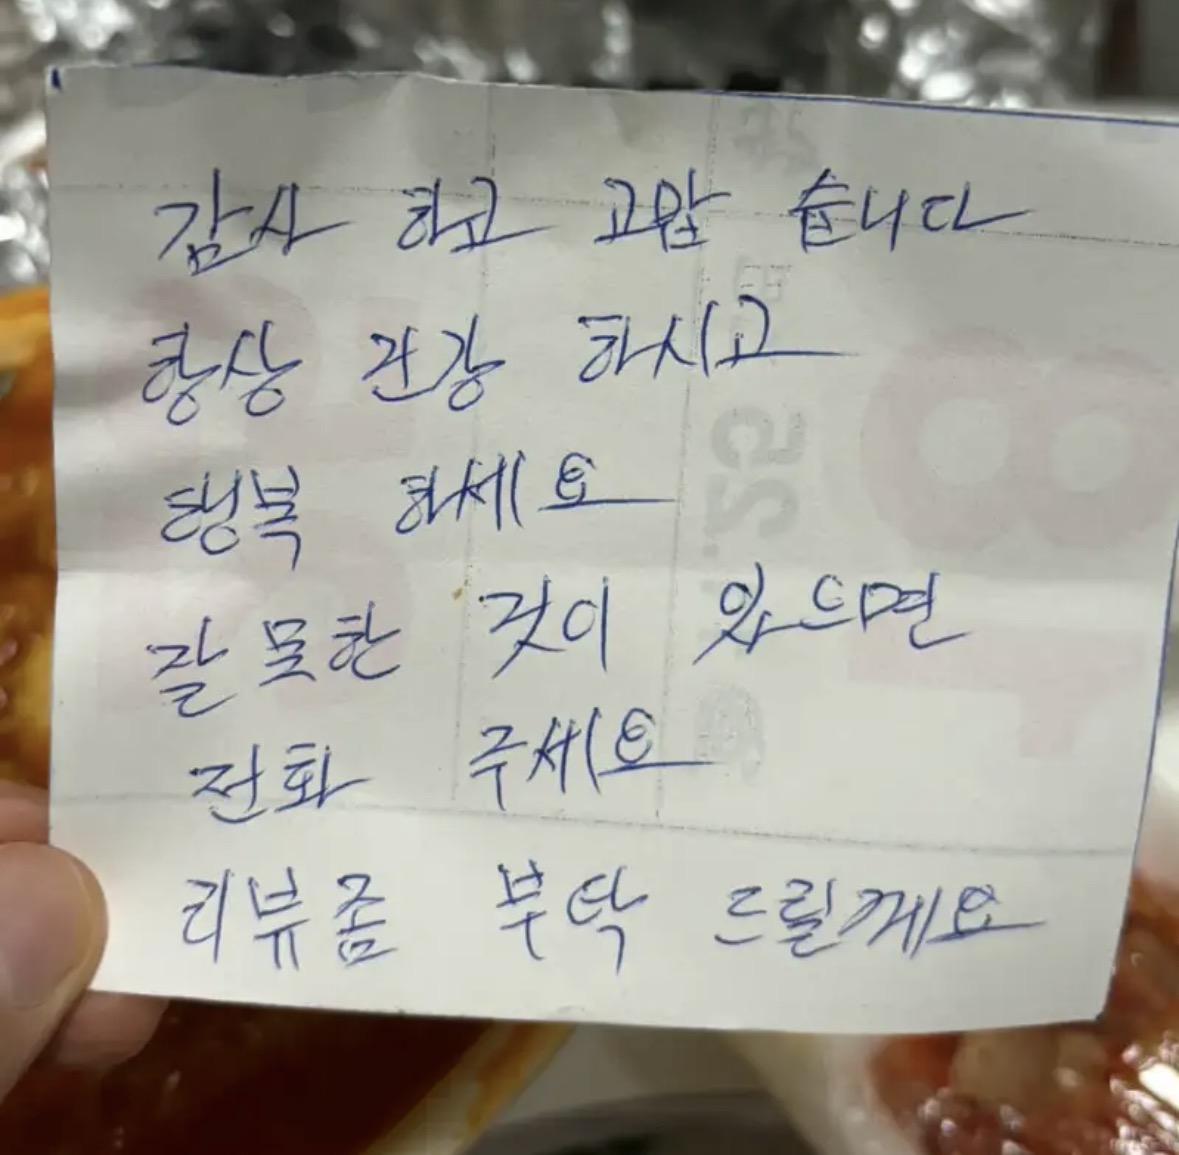 감사 하고 고맙 습니다
항상 건강 하시고
행복 하세요
잘못한 것이 있으면
전화 주세요
리뷰좀 부탁 드릴께요